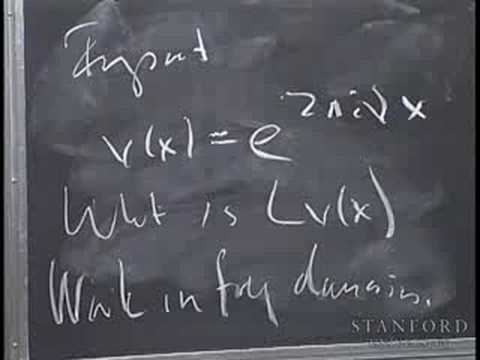 Input
v(x) = e^{2πiνx}
What is Lv(x)
Work in freq domain.
STANFORD
UNIVERSITY